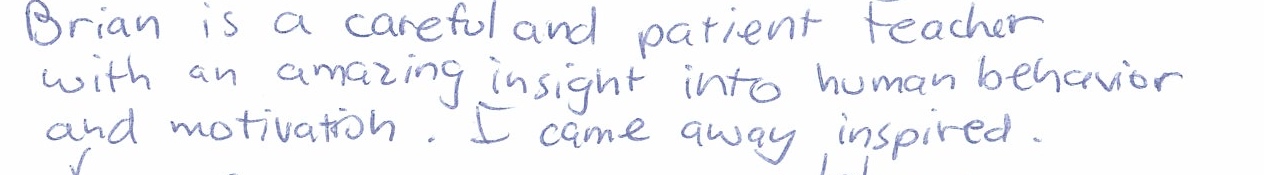 Brian is a careful and patient teacher
with an amazing insight into human behavior
and motivation. I came away inspired.